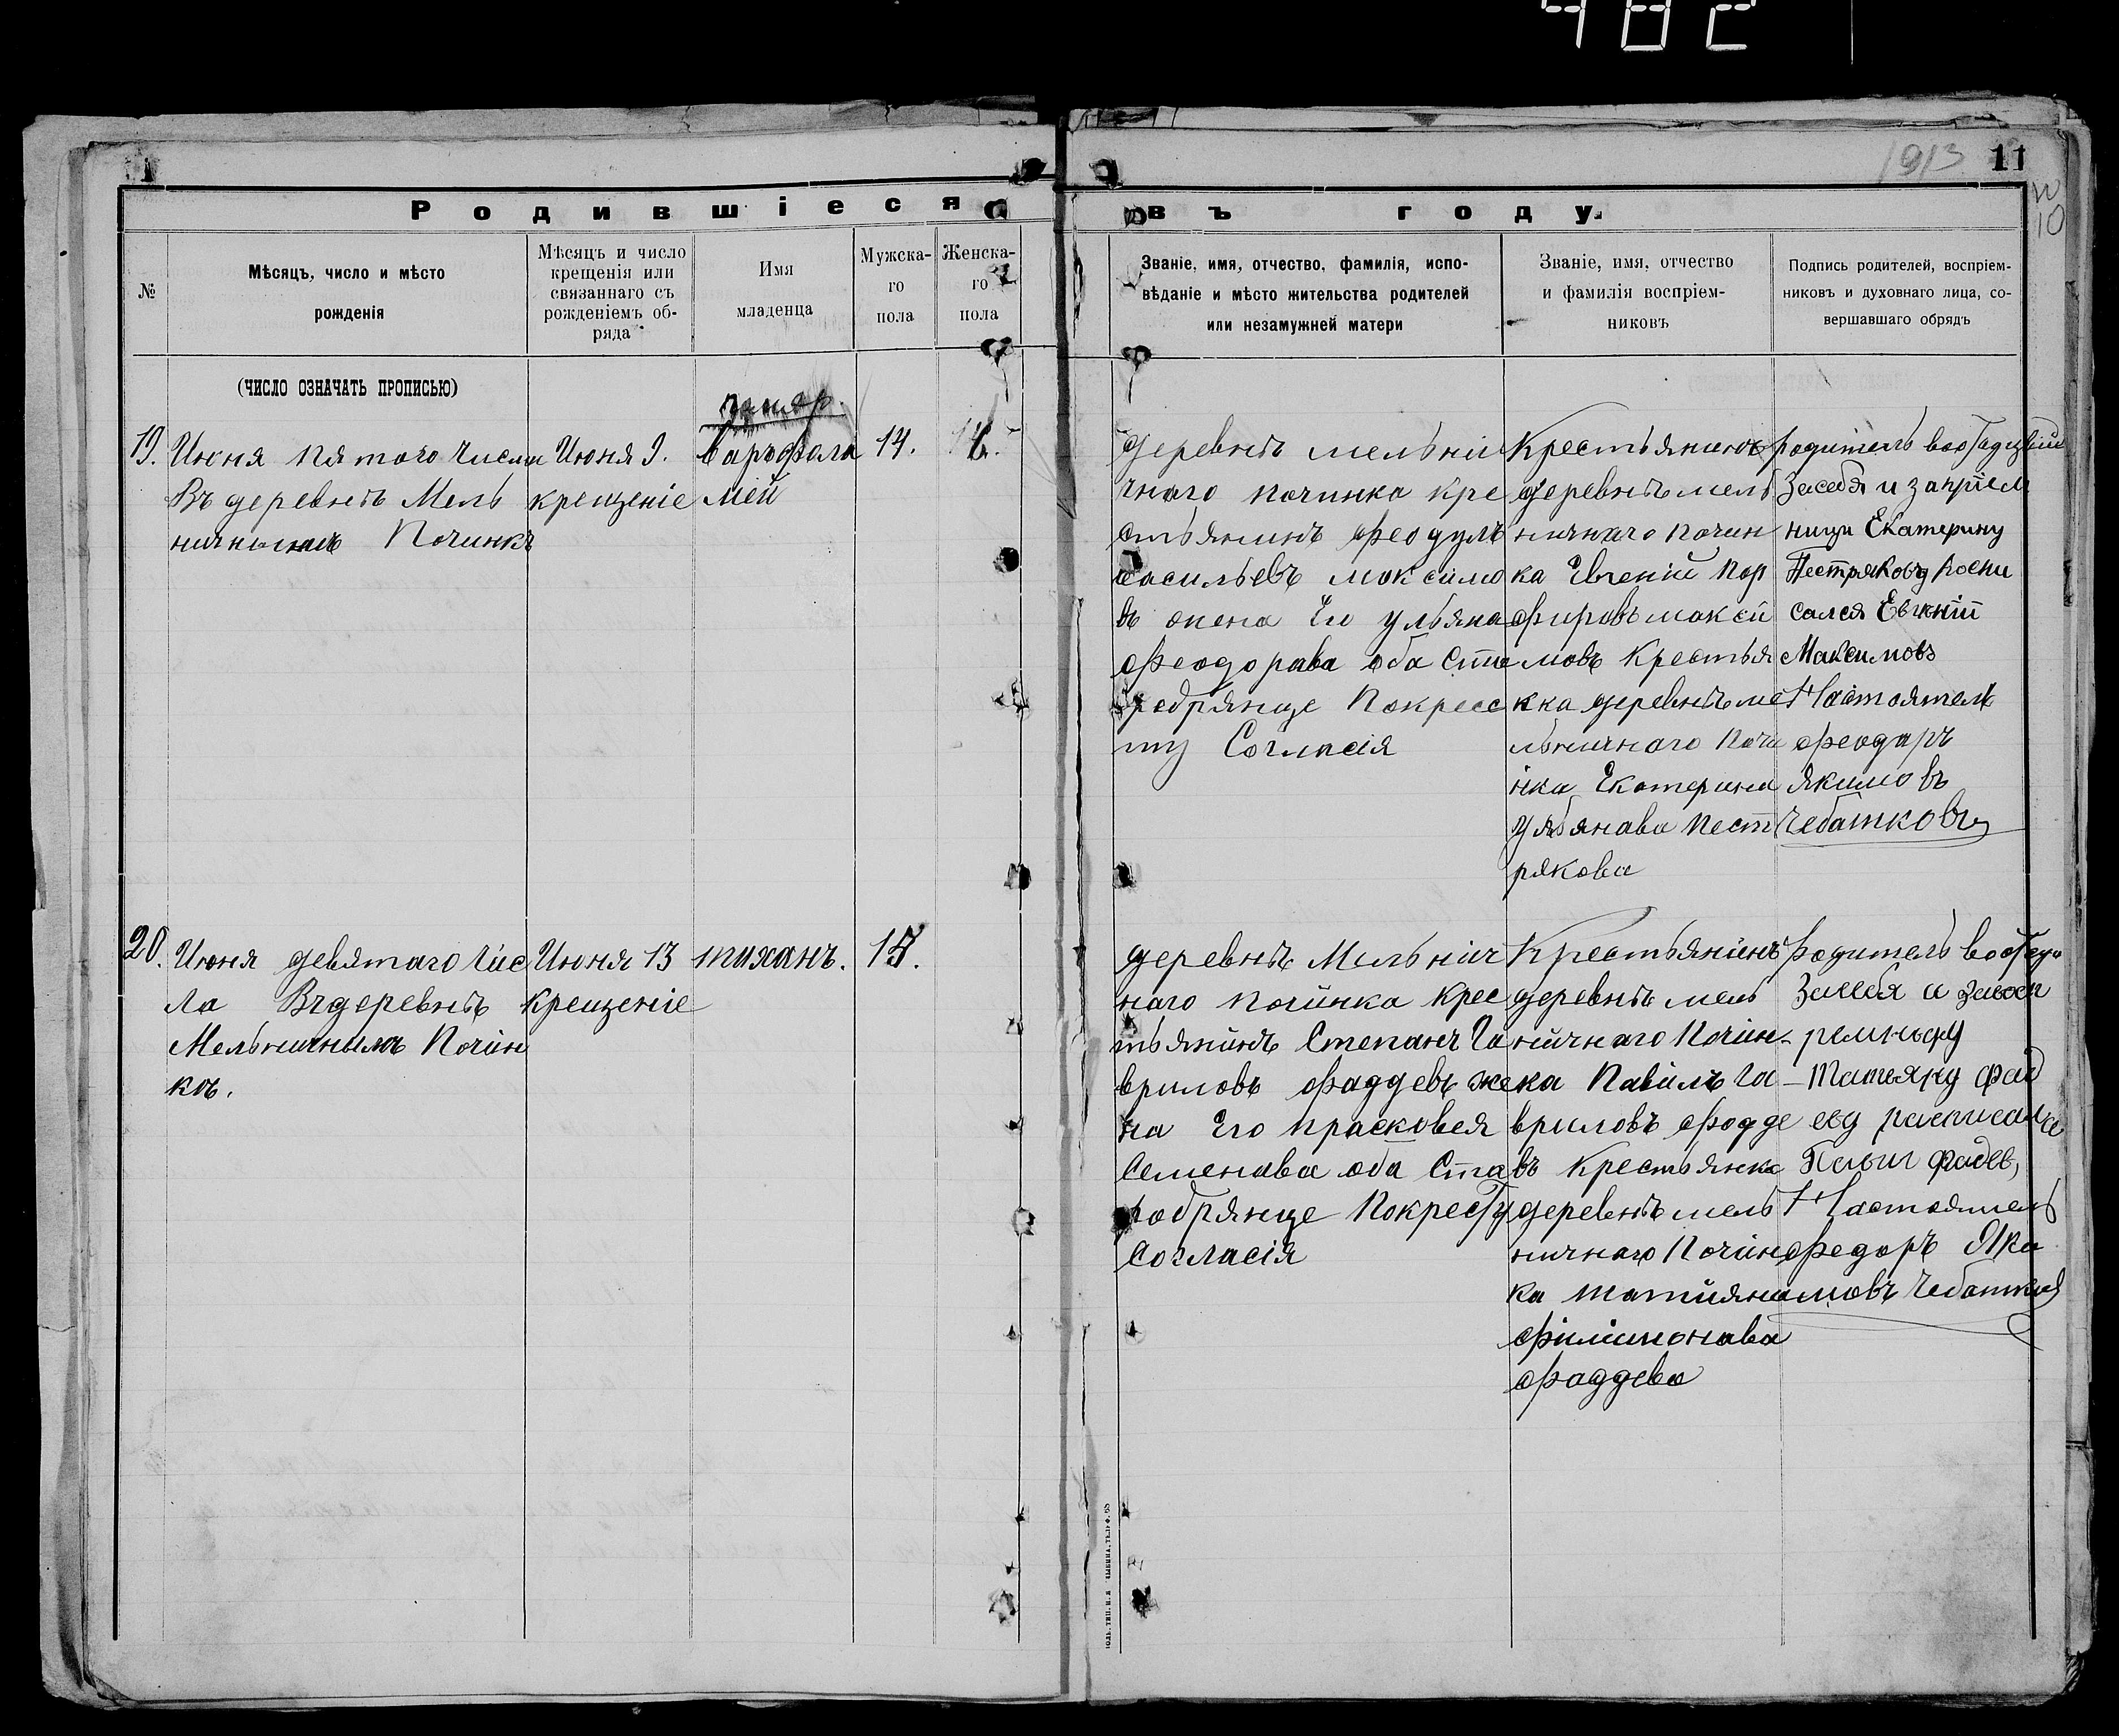 482
1913 11
10
Родившіеся
въ году.
№
Мѣсяцъ, число и мѣсто
рожденія
Мѣсяцъ и число
крещенія или
связаннаго съ
рожденіемъ об-
ряда
Имя
младенца
Мужска-
го
пола
Женска-
го
пола
Званіе, имя, отчество, фамилія, испо-
вѣданіе и мѣсто жительства родителей
или незамужней матери
Званіе, имя, отчество
и фамилія воспріем-
никовъ
Подпись родителей, воспріем-
никовъ и духовнаго лица, со-
вершавшаго обрядъ
(ЧИСЛО ОЗНАЧАТЬ ПРОПИСЬЮ)
19.
Июня пятого числа
Въ деревнѣ Мель
ничнымъ Починкѣ
Июня 9.
крещеніе
Варъфала
мей
14.
деревнѣ мельни
чнаго починка кре
стьянинъ феодулъ
васильевъ максимо
въ жена Его ульяна
феодорава оба Ста
рабрянце Покресс
ту Согласія
Крестьянинъ
деревнѣ мель
ничнаго почин
ка Евгеній пор
фировъ макси
мовъ Крестья
нка деревнѣ ме
льничнаго Почи
нка Екатерина
Ульянава Пест
рякова
родитель
засебя и запріем
ницу Екатерину
Пестрякову роспи
сался Евгеній
Максимовъ
Настоятель
феодаръ
Якимовъ
Чебатковъ
20.
Июня девятаго Чис
ла Въдеревнѣ
Мельничнымъ Почин
кѣ.
Июня 13
Крещеніе
тиханъ.
15.
деревнѣ Мельнич
наго починка Крес
тьянинъ Степанъ Га
вриловъ фаддевъ же
на Его прасковея
Семенава оба Ста
рабрянце Покресту
Согласія
Крестьянинъ
деревнѣ мель
ничнаго Почин-
ка Павилъ Га-
вриловъ фодде
въ Крестьянка
деревнѣ мель
ничнаго Почин
ка татияна
филимонава
фаддева
родитель
Засебя и
Татьяну Фад
еву расписался
Фадев,
Настоятель
федоръ Яки
мовъ Чебатков